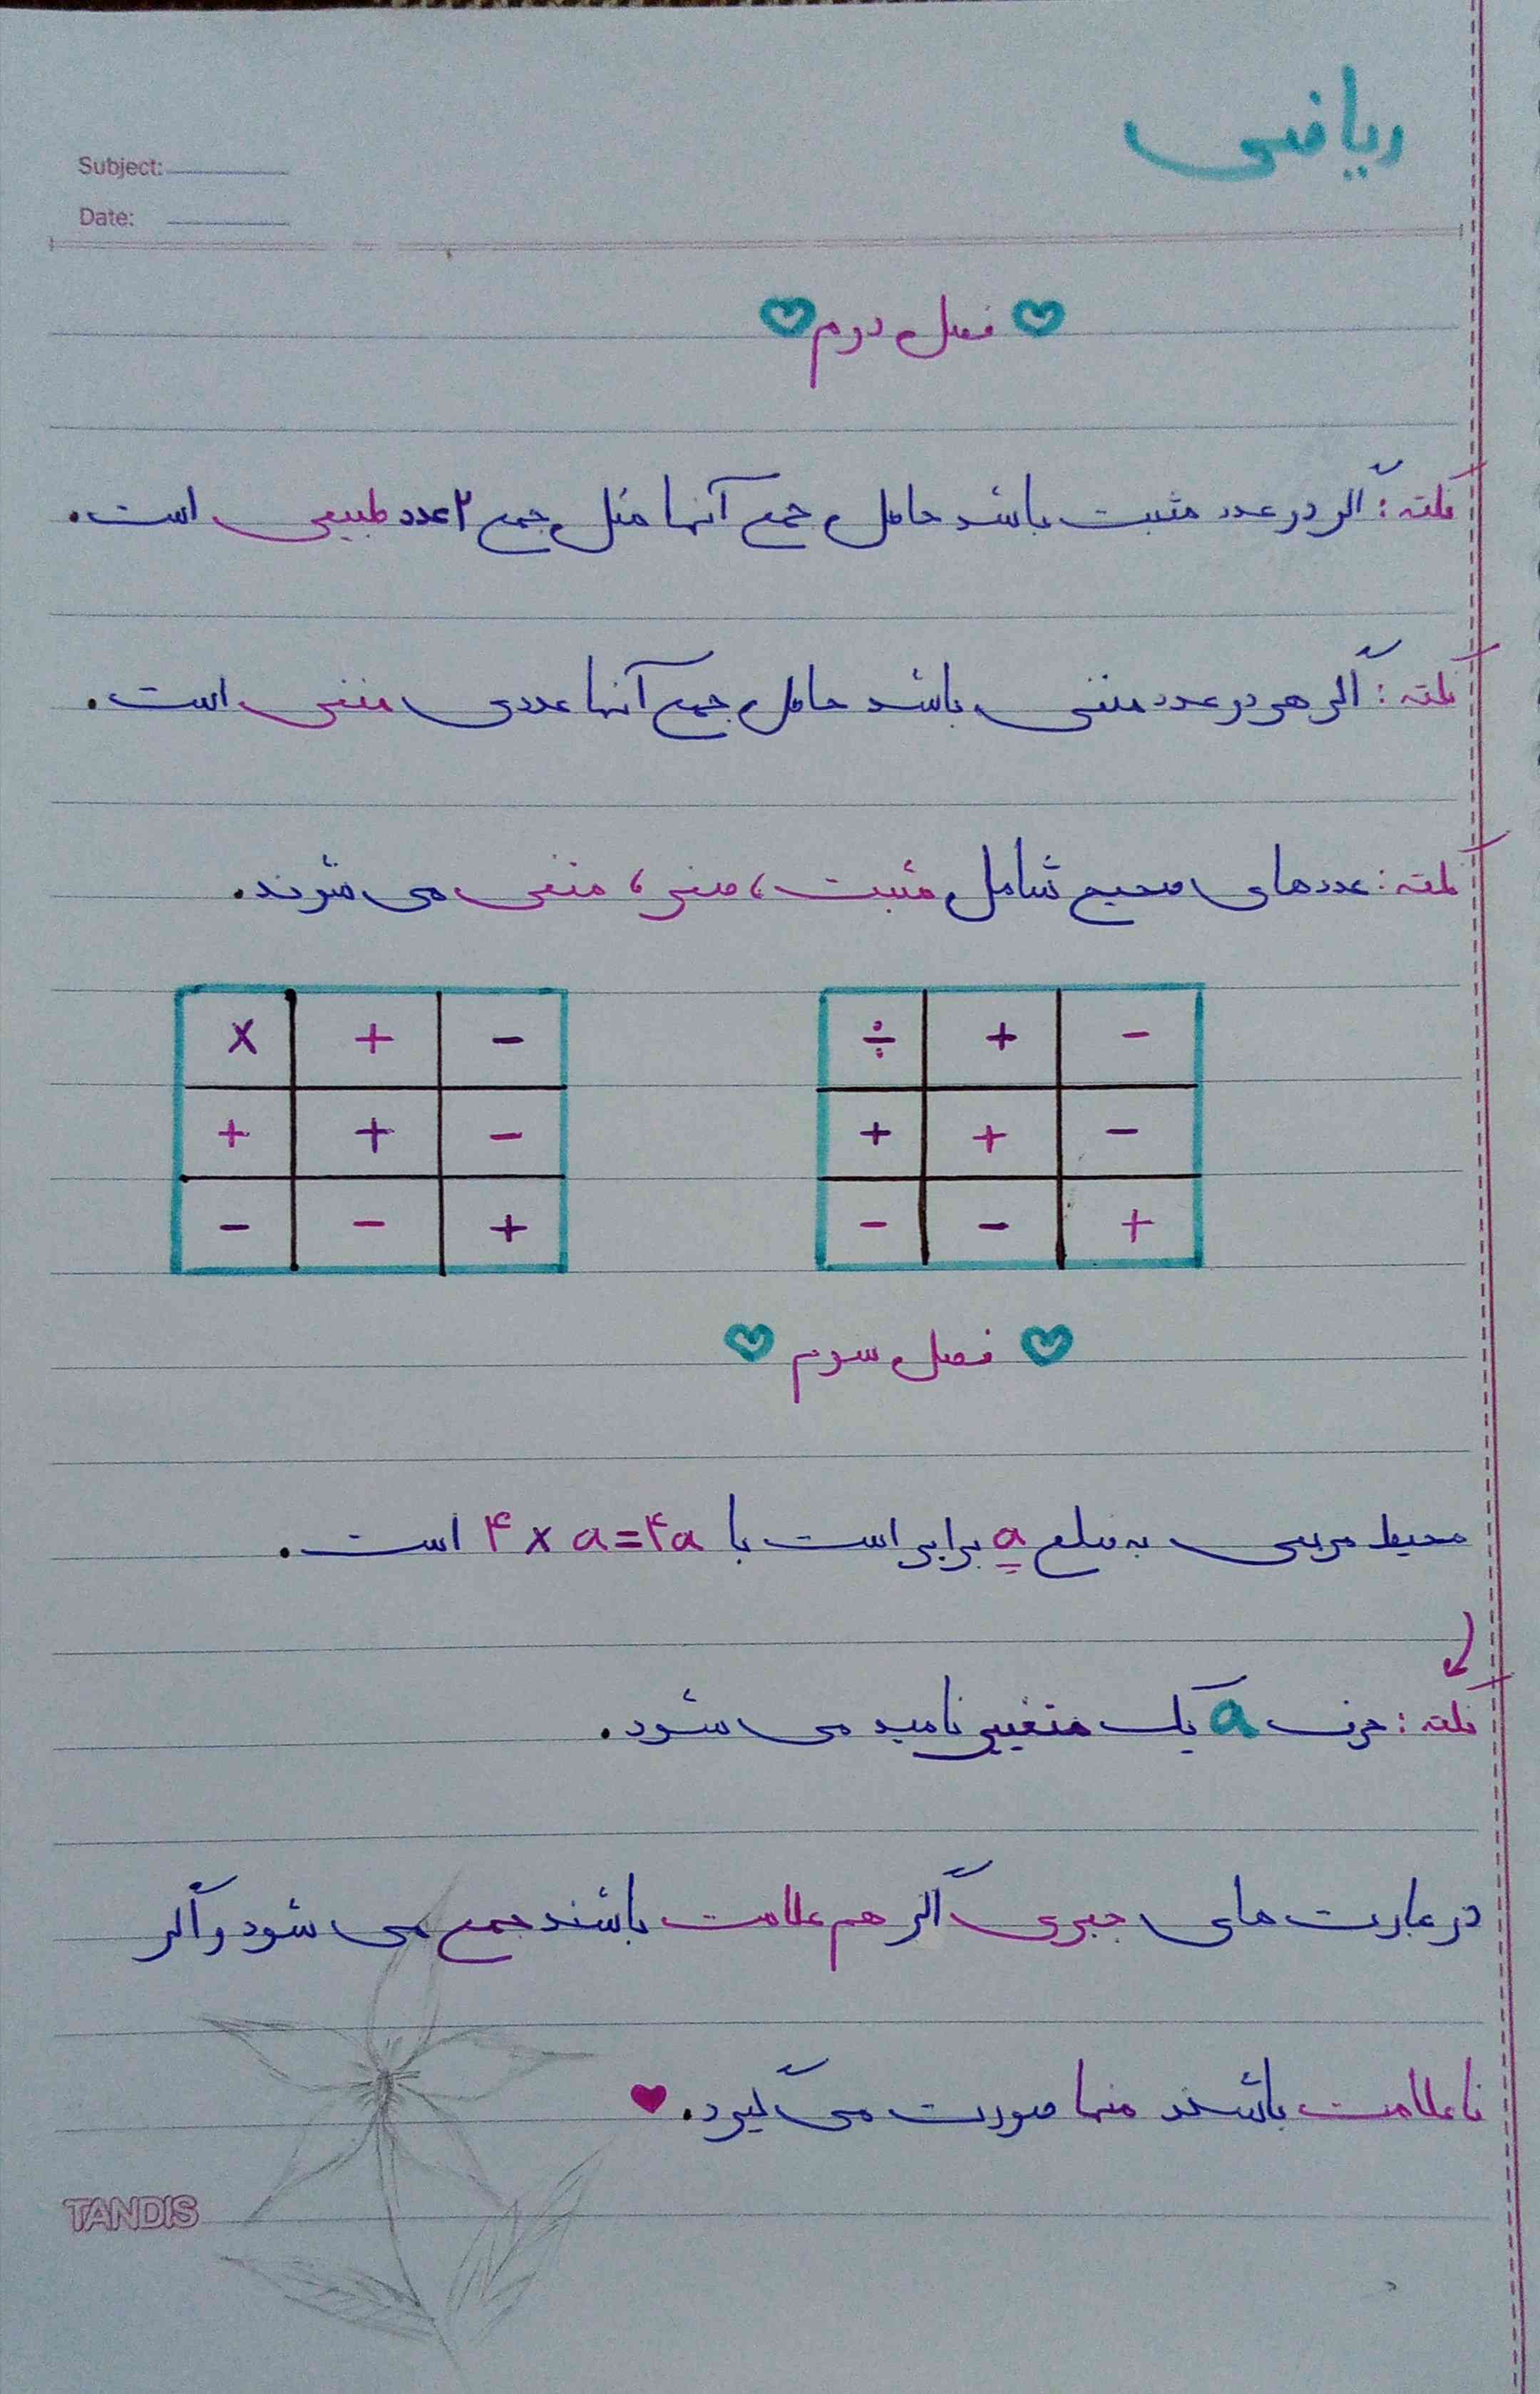 ریاضی
Subject:
Date:
فصل دوم
نکته: اگر دو عدد مثبت باشد حاصل جمع آنها مثل جمع ۲ عدد طبیعی است.
نکته: اگر هر دو عدد منفی باشد حاصل جمع آنها عددی منفی است.
نکته: عددهای صحیح شامل مثبت، صفر، منفی می شوند.
× + -
+ + -
- - +
÷ + -
+ + -
- - +
فصل سوم
محیط مربعی به ضلع a برابر است با ۴ × a = ۴a است.
نکته: حرف a یک متغییر نامید می شود.
در عبارت های جبری اگر هم علامت باشند جمع می شود و اگر
نا علامت باشند منها صورت می گیرد.
TANDIS